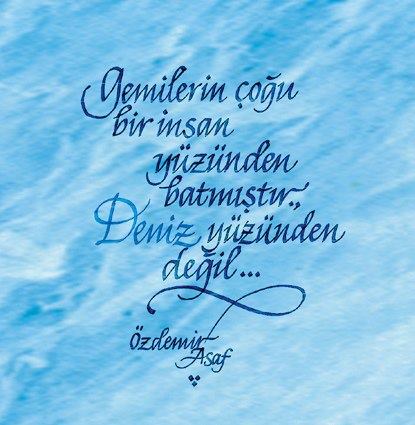 Gemilerin çoğu
bir insan
yüzünden
batmıştır.,
Deniz yüzünden
değil...
Özdemir
Asaf